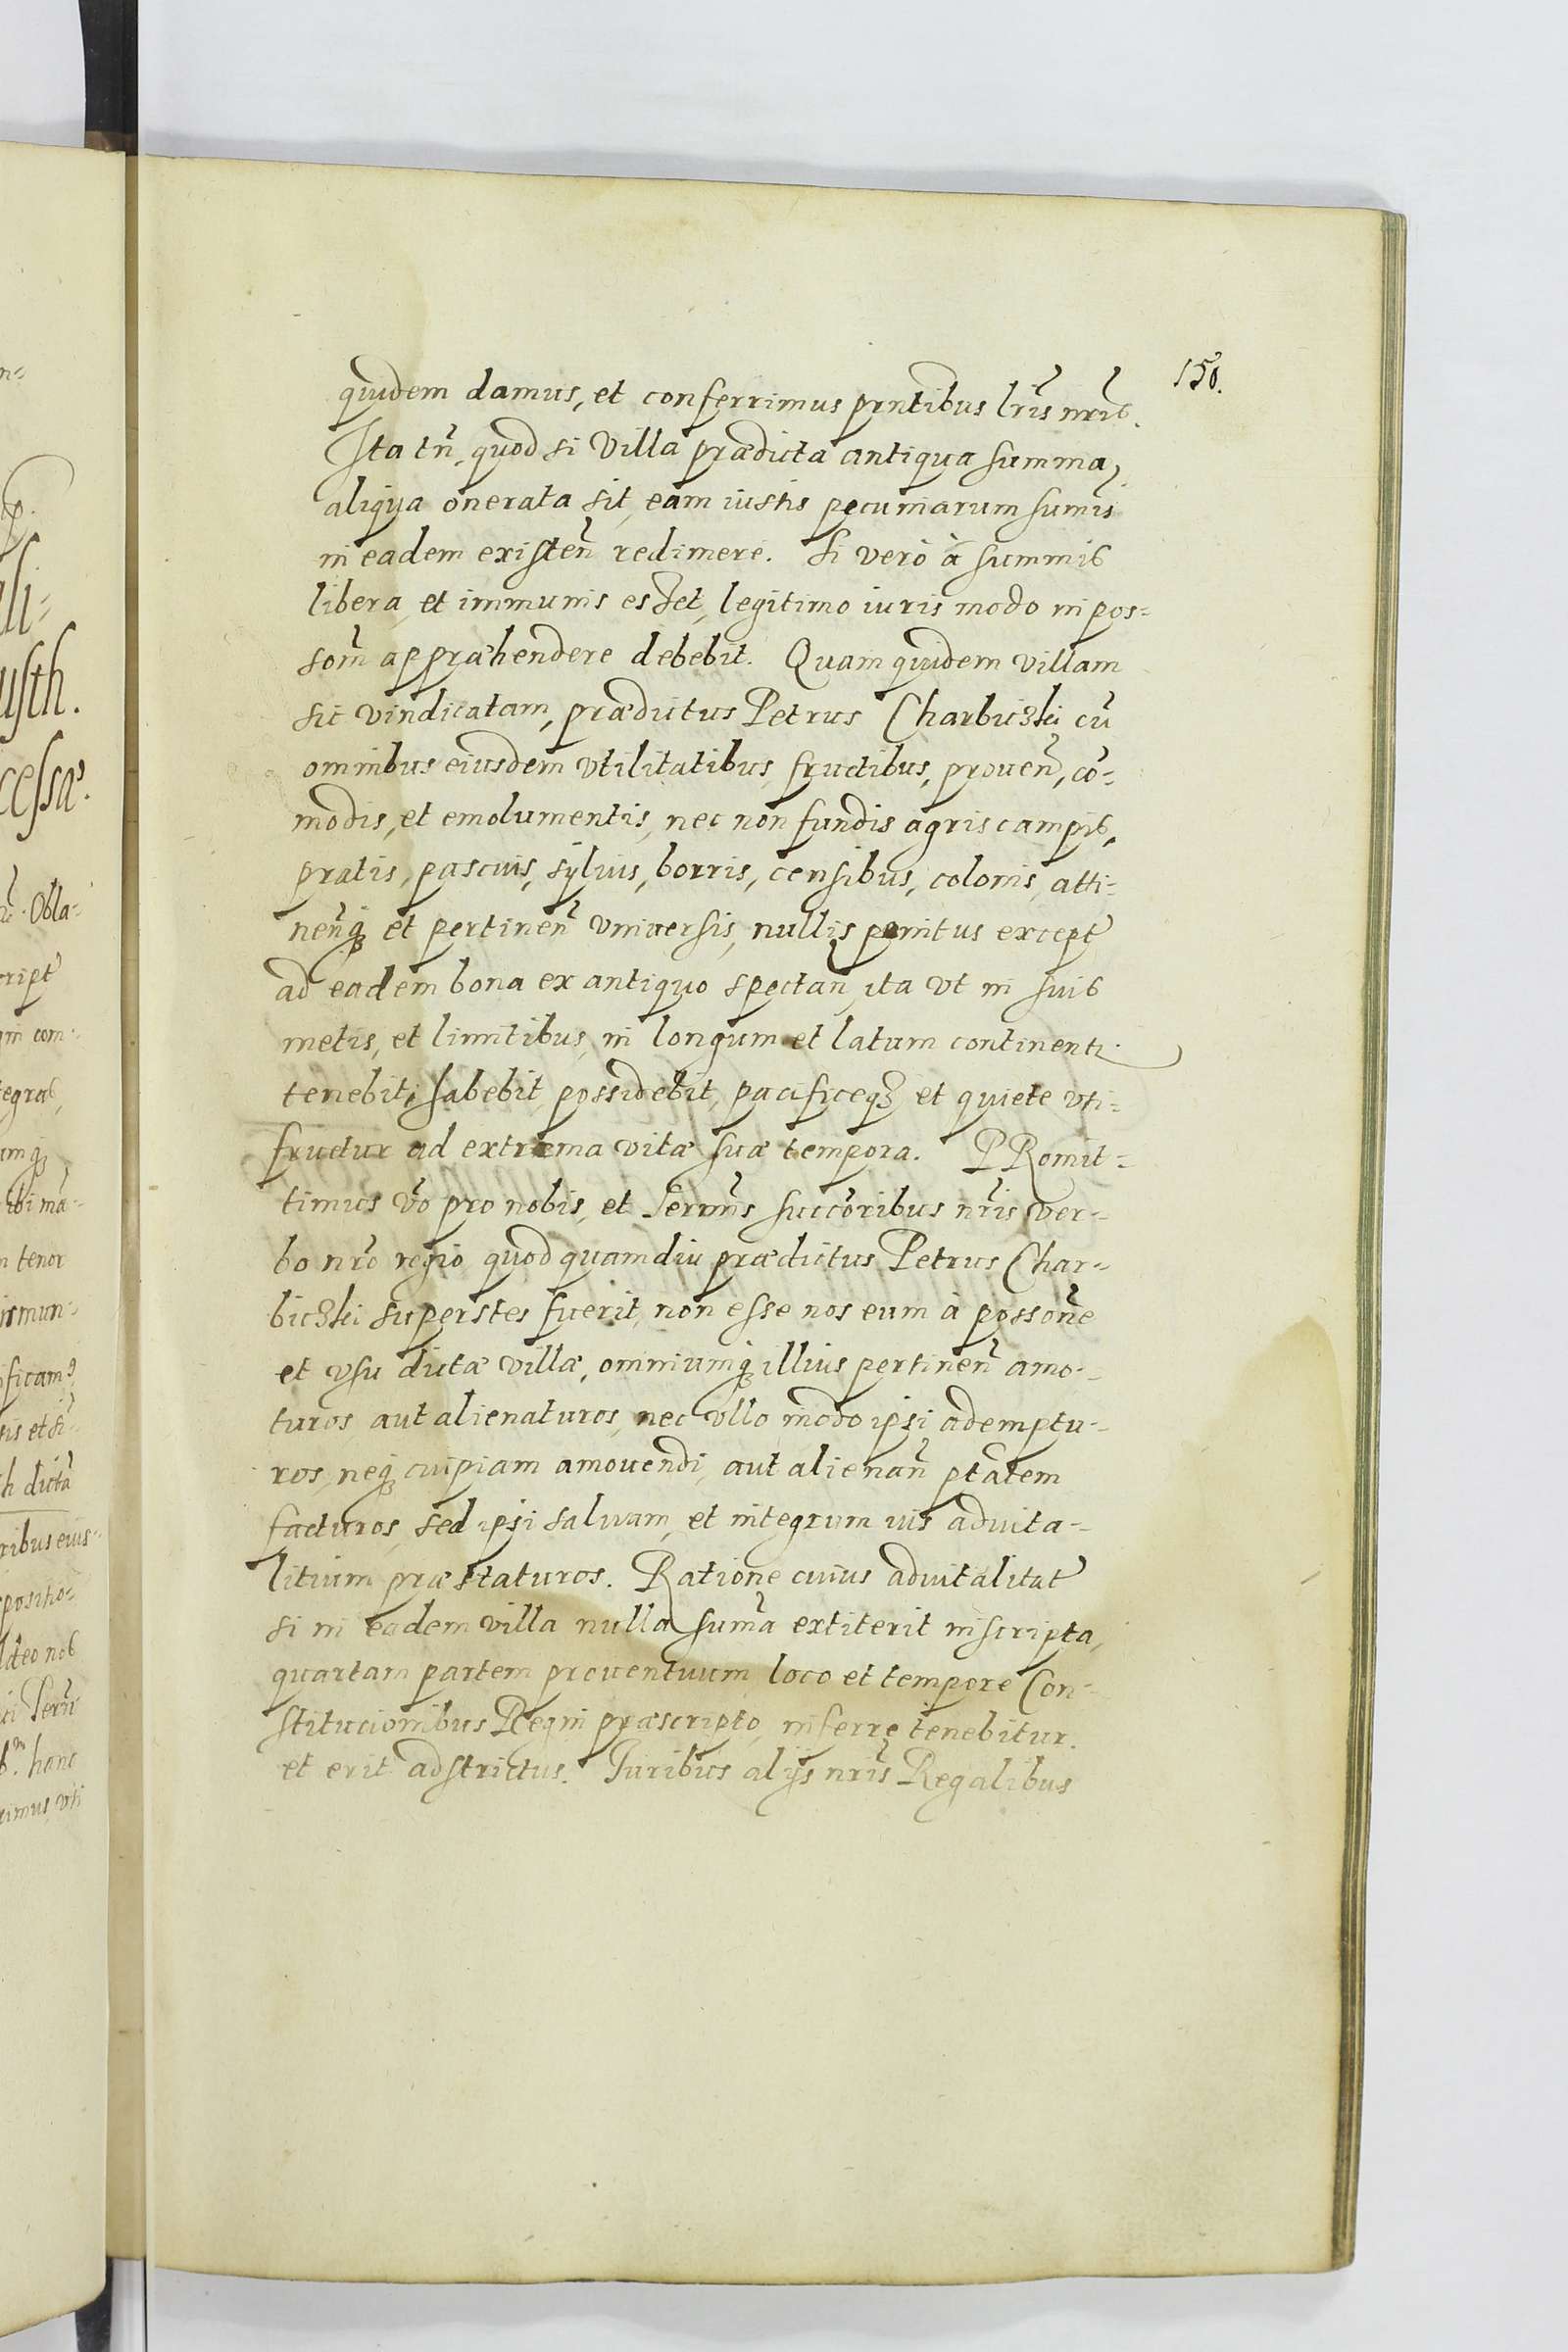 150.
quidem damus, et conferrimus prntibus lris nris.
Ita tn, quod si Villa prædicta antiqua summa,
aliqua onerata sit, eam iustis pecuniarum sumis
in eadem existen redimere. Si vero à summis
libera, et immunis esset, legitimo iuris modo in pos=
som appræhendere debebit. Quam quidem villam
sic vindicatam, prædictus Petrus Charbiczki cu
omnibus eiusdem vtilitatibus, fructibus, prouen, co=
modis, et emolumentis, nec non fundis agris campis,
pratis, pascuis, sÿluis, borris, censibus, colonis, atti=
nenq et pertinen vniuersis, nullis penitus except
ad eadem bona ex antiquo spectan, ita vt in suis
metis, et limitibus, in longum et latum continent.
tenebit, habebit, possidebit, pacificeq et quiete vti=
fruetur ad extrema vitæ suæ tempora. PRomit=
timus vo pro nobis, et Sermis succoribus nris ver=
bo nro regio quod quamdiu prædictus Petrus Char=
biczki superstes fuerit, non esse nos eum à possone
et vsu dictæ villæ, omniumq illius pertinen amo=
turos aut alienaturos, nec vllo modo ipsi ademptu=
ros, neq cuipiam amouendi, aut alienan ptatem
facturos, sed ipsi saluam, et integrum ius aduita=
litium præstaturos. Ratione cuius aduitalitat
si in eadem villa nulla suma extiterit inscripta,
quartam partem prouentuum loco et tempore Con=
stitucionibus Regni præscripto, inferre tenebitur.
et erit adstrictus. Iuribus alijs nris Regalibus